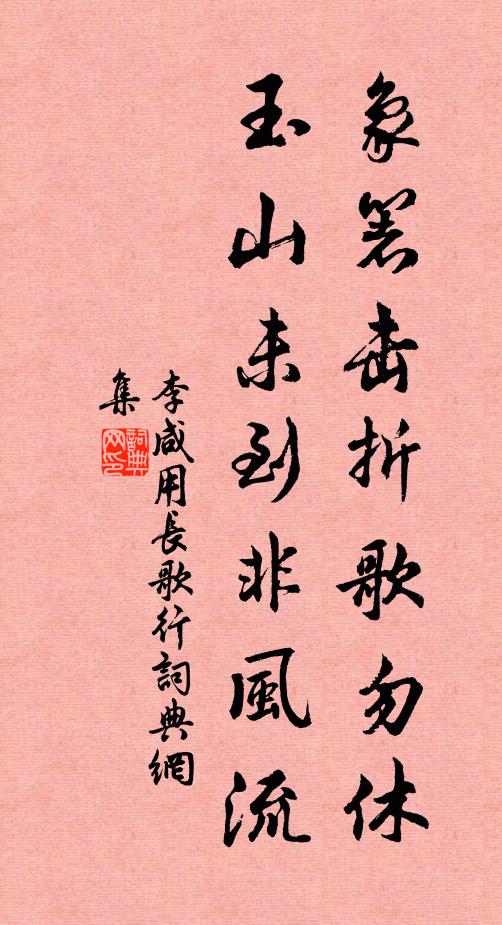 象箸击折歌勿休
玉山未到非風流
李咸用長歌行詞典網
集
詞典网印